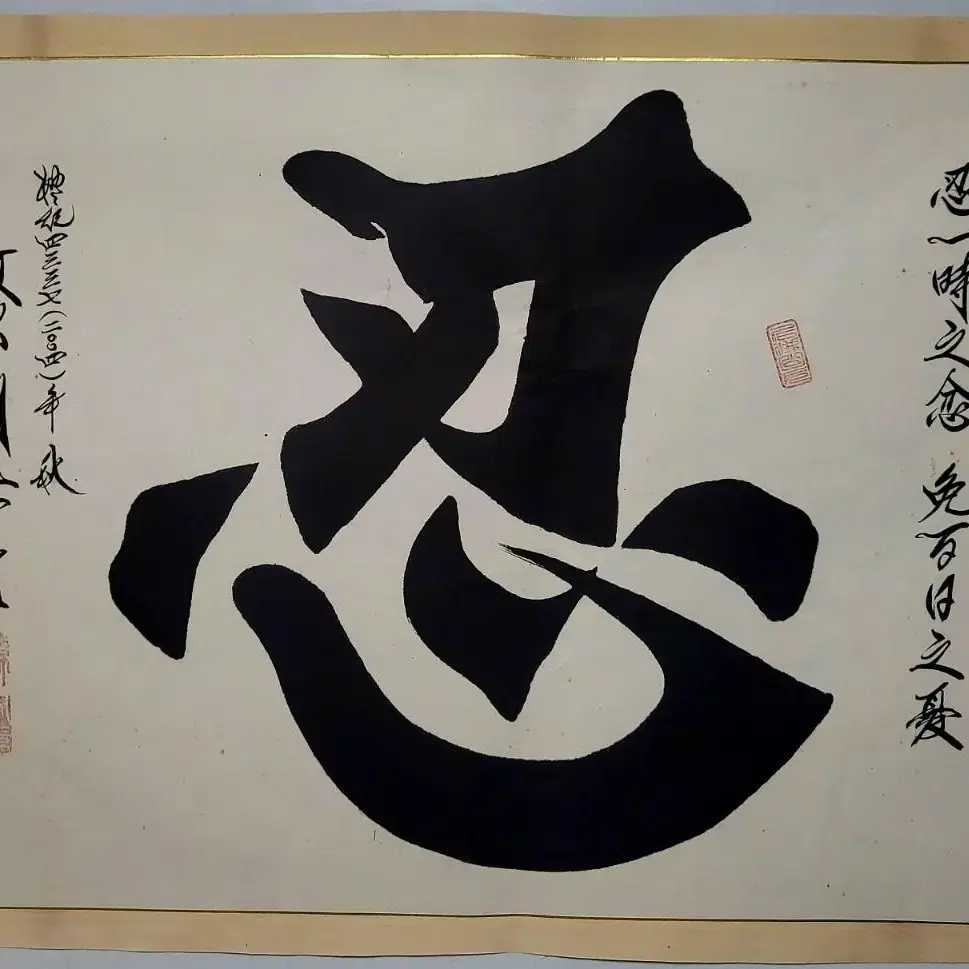 忍一時之忿 免百日之憂
忍
檀紀四三三七(二〇〇四)年 秋